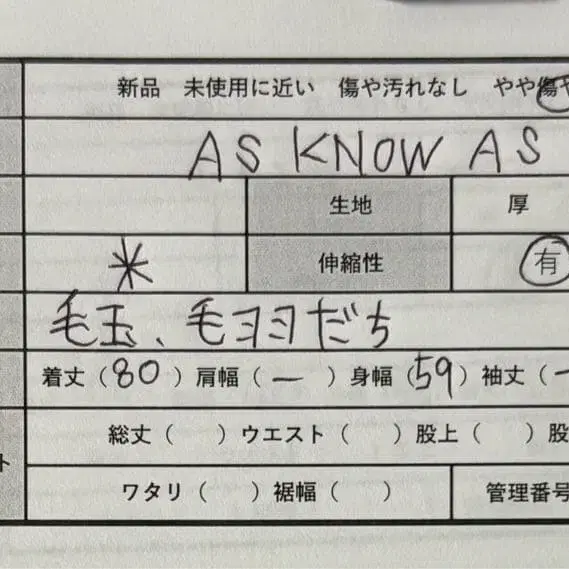 新品 未使用に近い 傷や汚れなし やや傷や
AS KNOW AS
生地 厚
* 伸縮性 有
毛玉、毛ヨヨだち
着丈（80）肩幅（ー）身幅（59）袖丈（ー
総丈（ ）ウエスト（ ）股上（ ）股
ト
ワタリ（ ）裾幅（ ） 管理番号